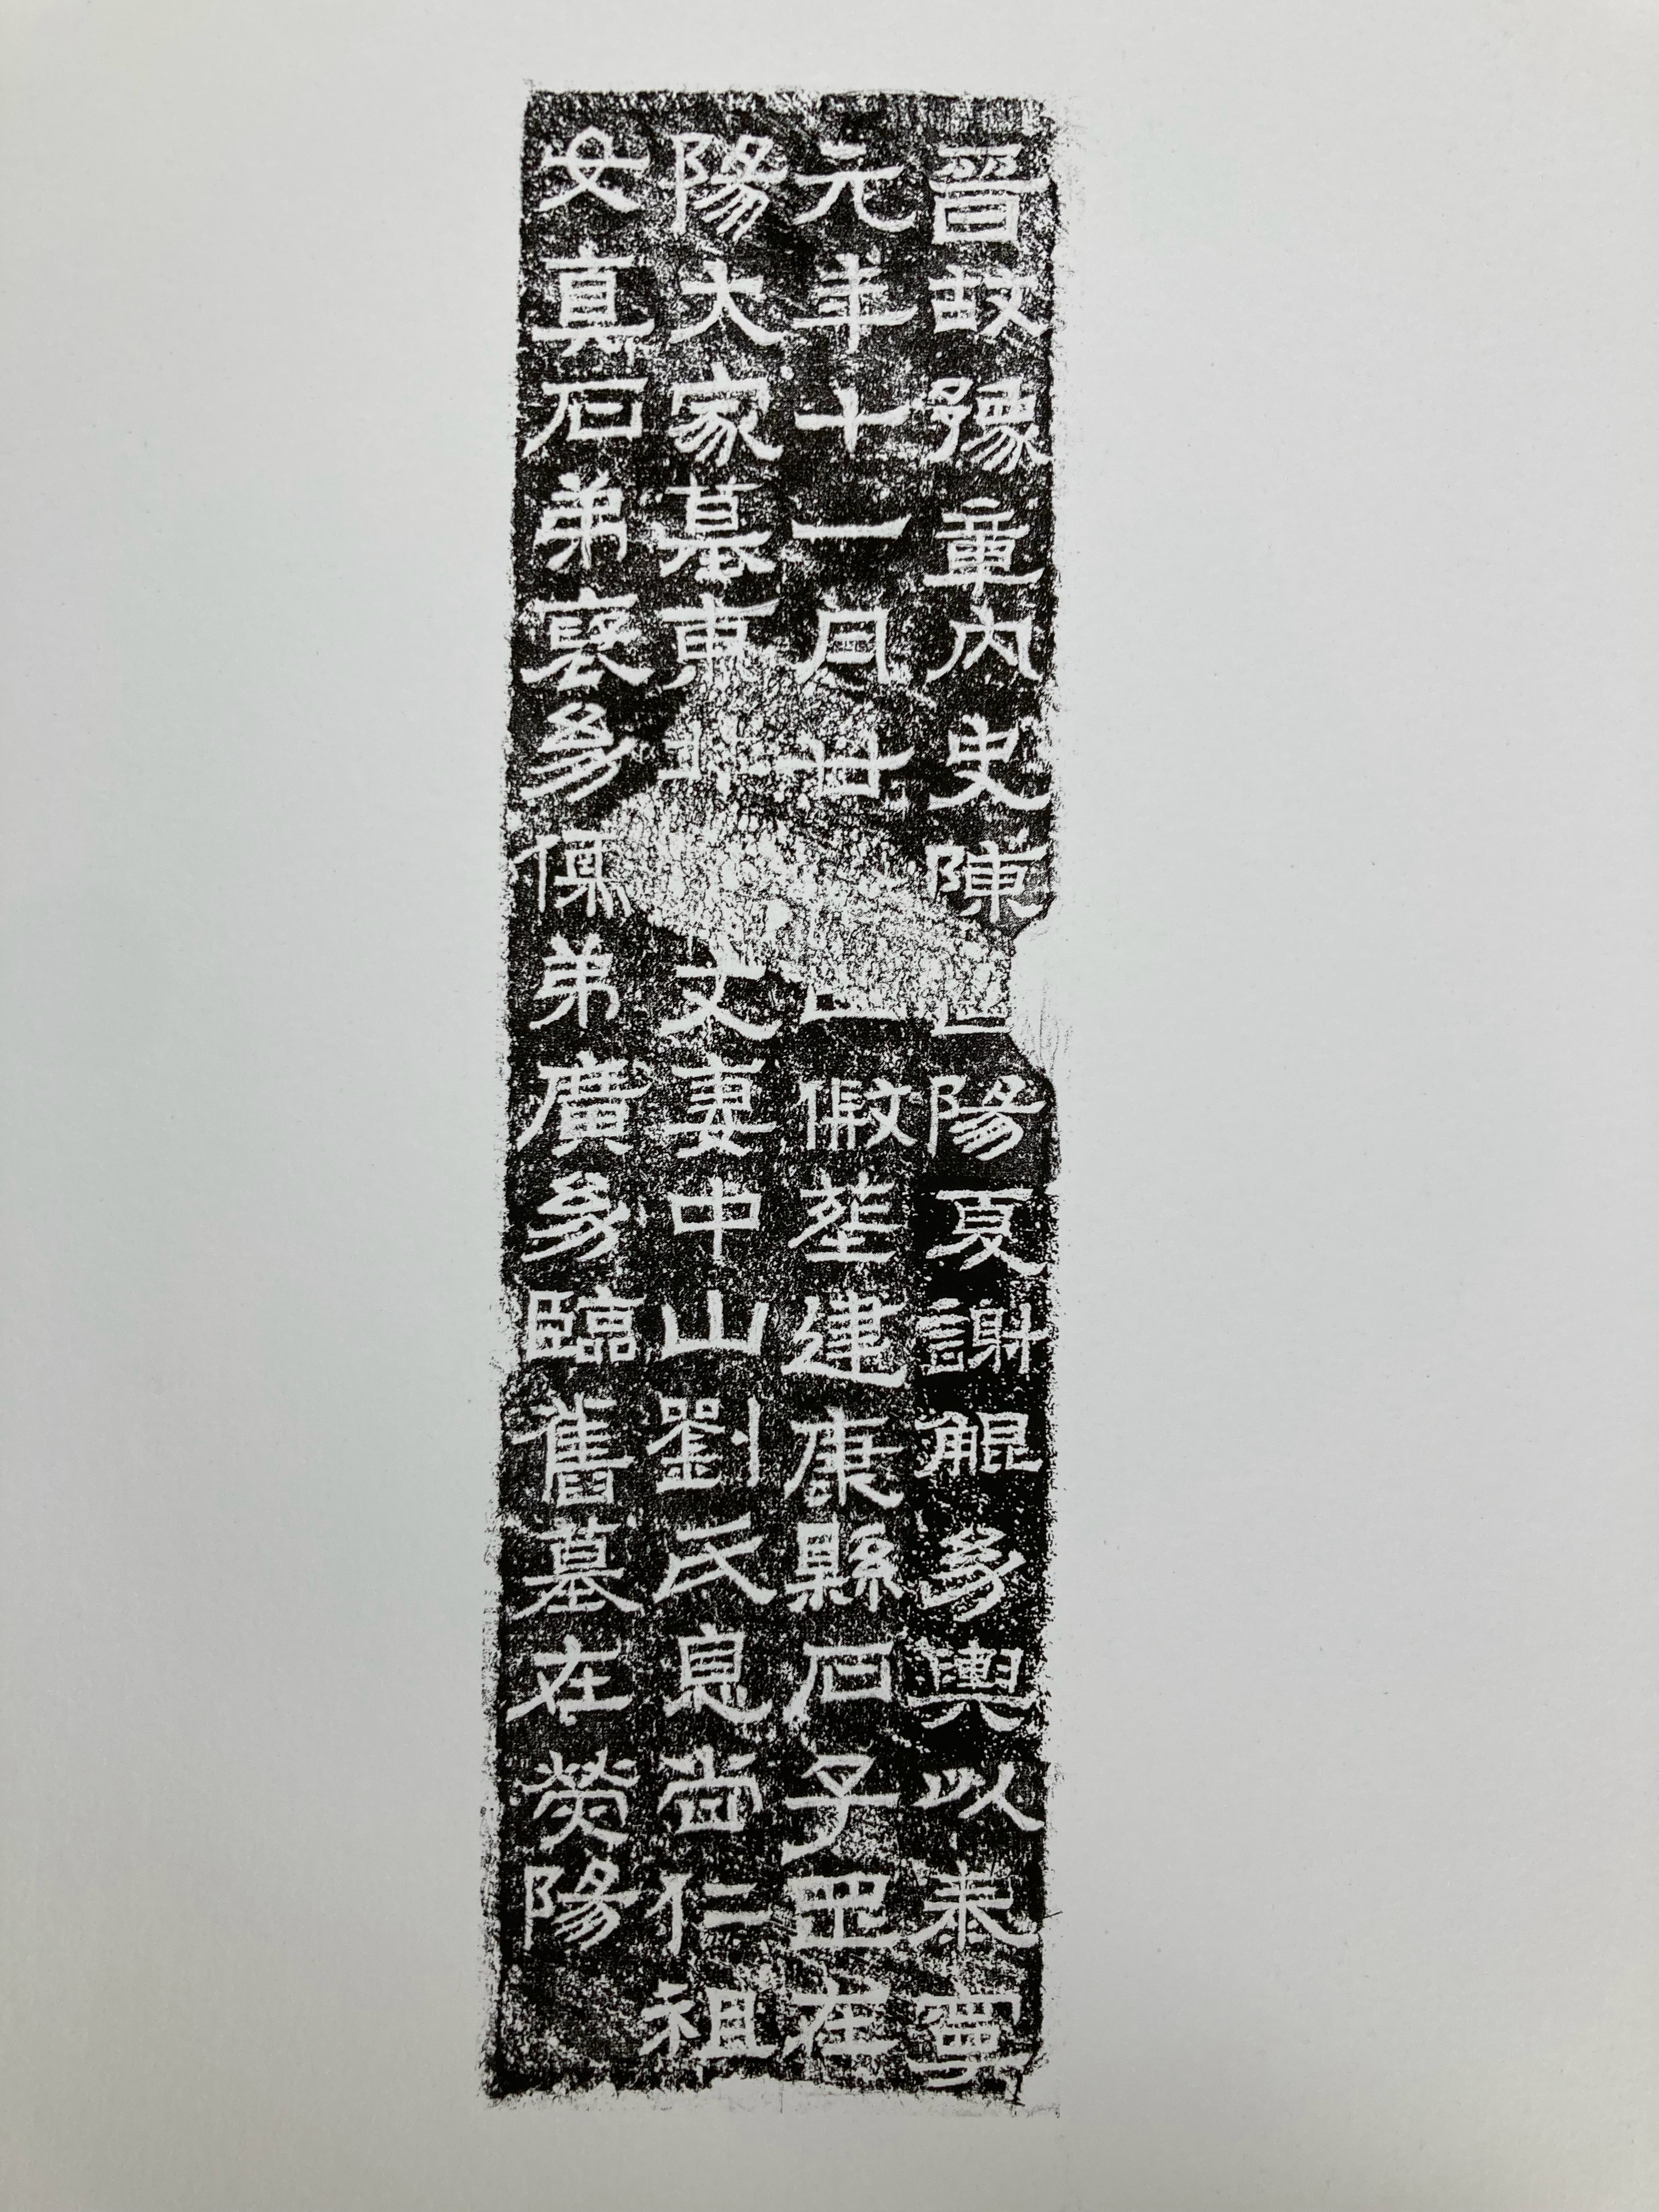 晉故豫章內史陳　陽夏謝鯤幼輿以泰寧
元年十一月廿　　假葬建康縣石子罡在
陽大家墓東北　丈妻中山劉氏息尚仁祖
女真石弟裒幼儒弟廣幼臨舊墓在熒陽